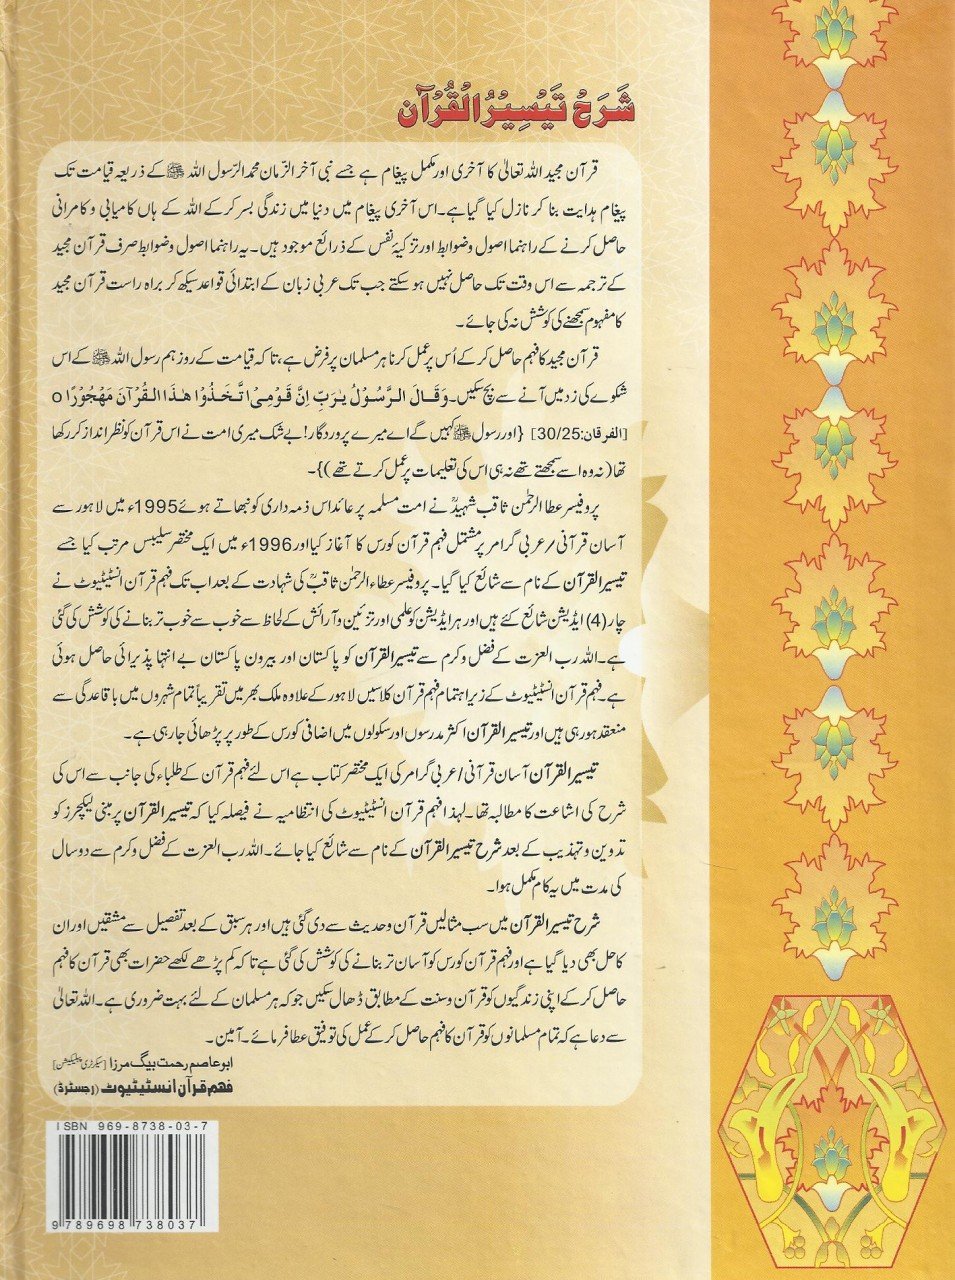 شَرَحُ تَيْسِيْرُ الْقُرْآن
قرآن مجید اللہ تعالیٰ کا آخری اور مکمل پیغام ہے جسے نبی آخر الزّمان محمد الرّسول اللہ ﷺ کے ذریعہ قیامت تک
پیغام ہدایت بنا کر نازل کیا گیا ہے۔ اس آخری پیغام میں دنیا میں زندگی بسر کر کے اللہ کے ہاں کامیابی و کامرانی
حاصل کرنے کے راہنما اصول وضوابط اور تزکیۂ نفس کے ذرائع موجود ہیں۔ یہ راہنما اصول وضوابط صرف قرآن مجید
کے ترجمہ سے اس وقت تک حاصل نہیں ہو سکتے جب تک عربی زبان کے ابتدائی قواعد سیکھ کر براہ راست قرآن مجید
کا مفہوم سمجھنے کی کوشش نہ کی جائے۔
قرآن مجید کا فہم حاصل کر کے اُس پر عمل کرنا ہر مسلمان پر فرض ہے، تاکہ قیامت کے روز ہم رسول اللہ ﷺ کے اس
شکوے کی زد میں آنے سے بچ سکیں۔ وَقَـالَ الـرَّسُـوْلُ یٰرَبِّ اِنَّ قَـوْمِـی اتَّـخَـذُوْا هٰـذَا الْـقُـرْآنَ مَهْـجُوْرًا o
[الفرقان:30/25] {اور رسول ﷺ کہیں گے اے میرے پروردگار! بے شک میری امت نے اس قرآن کو نظر انداز کر رکھا
تھا (نہ وہ اسے سمجھتے تھے نہ ہی اس کی تعلیمات پر عمل کرتے تھے)}۔
پروفیسر عطا الرحمٰن ثاقب شہیدؒ نے امت مسلمہ پر عائد اس ذمہ داری کو نبھاتے ہوئے 1995ء میں لاہور سے
آسان قرآنی/عربی گرامر پر مشتمل فہم قرآن کورس کا آغاز کیا اور 1996ء میں ایک مختصر سلیبس مرتب کیا جسے
تیسیر القرآن کے نام سے شائع کیا گیا۔ پروفیسر عطاء الرحمٰن ثاقبؒ کی شہادت کے بعد اب تک فہم قرآن انسٹیٹیوٹ نے
چار (4) ایڈیشن شائع کئے ہیں اور ہر ایڈیشن کو علمی اور تزئین و آرائش کے لحاظ سے خوب سے خوب تر بنانے کی کوشش کی گئی
ہے۔ اللہ رب العزت کے فضل وکرم سے تیسیر القرآن کو پاکستان اور بیرون پاکستان بے انتہا پذیرائی حاصل ہوئی
ہے۔ فہم قرآن انسٹیٹیوٹ کے زیر اہتمام فہم قرآن کلاسیں لاہور کے علاوہ ملک بھر میں تقریباً تمام شہروں میں باقاعدگی سے
منعقد ہو رہی ہیں اور تیسیر القرآن اکثر مدرسوں اور سکولوں میں اضافی کورس کے طور پر پڑھائی جا رہی ہے۔
تیسیر القرآن آسان قرآنی/عربی گرامر کی ایک مختصر کتاب ہے اس لئے فہم قرآن کے طلباء کی جانب سے اس کی
شرح کی اشاعت کا مطالبہ تھا۔ لہذا فہم قرآن انسٹیٹیوٹ کی انتظامیہ نے فیصلہ کیا کہ تیسیر القرآن پر مبنی لیکچرز کو
تدوین و تہذیب کے بعد شرح تیسیر القرآن کے نام سے شائع کیا جائے۔ اللہ رب العزت کے فضل وکرم سے دو سال
کی مدت میں یہ کام مکمل ہوا۔
شرح تیسیر القرآن میں سب مثالیں قرآن وحدیث سے دی گئی ہیں اور ہر سبق کے بعد تفصیل سے مشقیں اور ان
کا حل بھی دیا گیا ہے اور فہم قرآن کورس کو آسان تر بنانے کی کوشش کی گئی ہے تا کہ کم پڑھے لکھے حضرات بھی قرآن کا فہم
حاصل کر کے اپنی زندگیوں کو قرآن وسنت کے مطابق ڈھال سکیں جو کہ ہر مسلمان کے لئے بہت ضروری ہے۔ اللہ تعالیٰ
سے دعا ہے کہ تمام مسلمانوں کو قرآن کا فہم حاصل کر کے عمل کی توفیق عطا فرمائے۔ آمین۔
ابو عاصم رحمت بیگ مرزا [سیکرٹری پبلیکیشن]
فہم قرآن انسٹیٹیوٹ (رجسٹرڈ)
ISBN 969-8738-03-7
9 789698 738037